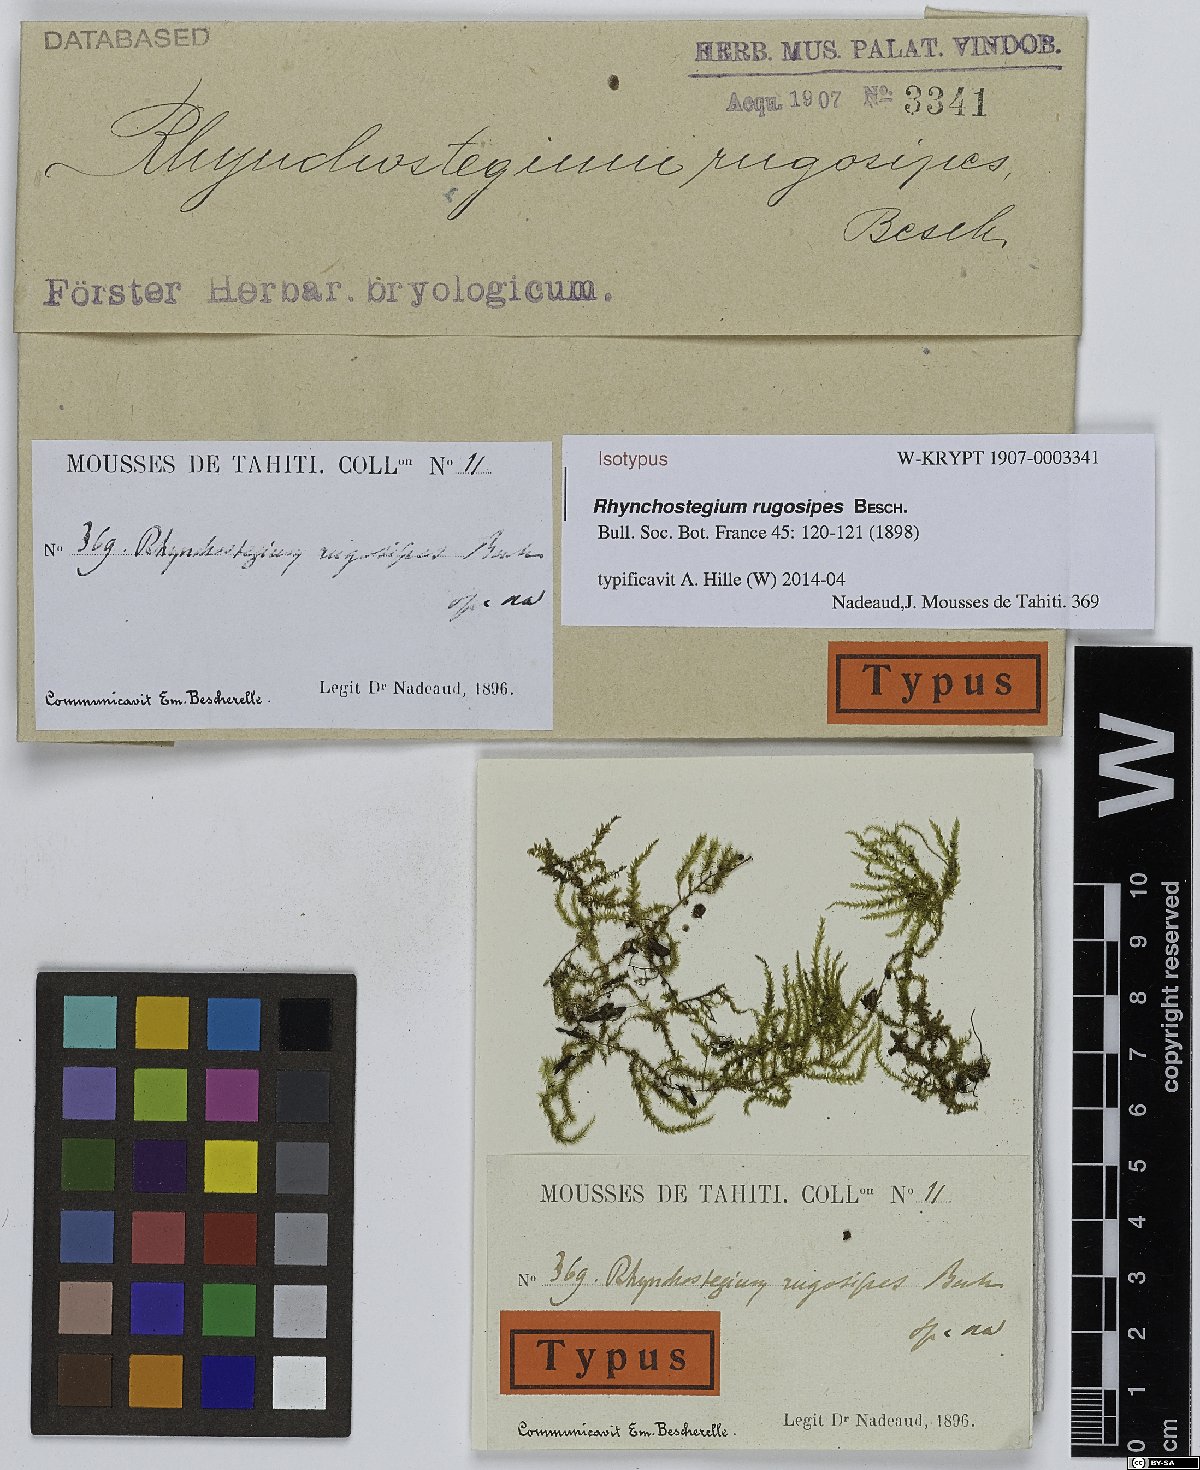 DATABASED
HERB. MUS. PALAT. VINDOB.
Acqu. 1907 No. 3341
Rhynchostegium rugosipes,
Besch.
Förster Herbar. bryologicum.
MOUSSES DE TAHITI. COLLon No 11
No 369. Rhynchostegium rugosipes Besch
sp.
Communicavit Em. Bescherelle.
Legit Dr Nadeaud, 1896.
Isotypus
W-KRYPT 1907-0003341
Rhynchostegium rugosipes BESCH.
Bull. Soc. Bot. France 45: 120-121 (1898)
typificavit A. Hille (W) 2014-04
Nadeaud,J. Mousses de Tahiti. 369
Typus
MOUSSES DE TAHITI. COLLon No 11
No 369. Rhynchostegium rugosipes Besch
sp.
Typus
Communicavit Em. Bescherelle.
Legit Dr Nadeaud, 1896.
W
0 1 2 3 4 5 6 7 8 9 10
cm
copyright reserved
cc BY-SA